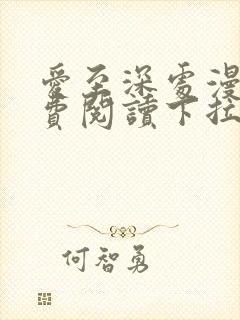 愛至深處漫
費閱讀下拉
何智勇